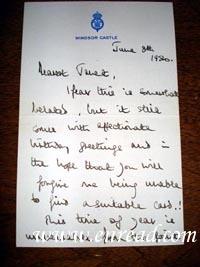 WINDSOR CASTLE
June 8th
1980.
Dearest
I fear this is somewhat
belated, but it still
comes with affectionate
birthday greetings and in
the hope that you will
forgive me being unable
to find a suitable card!!
This time of year is
www.enread.com